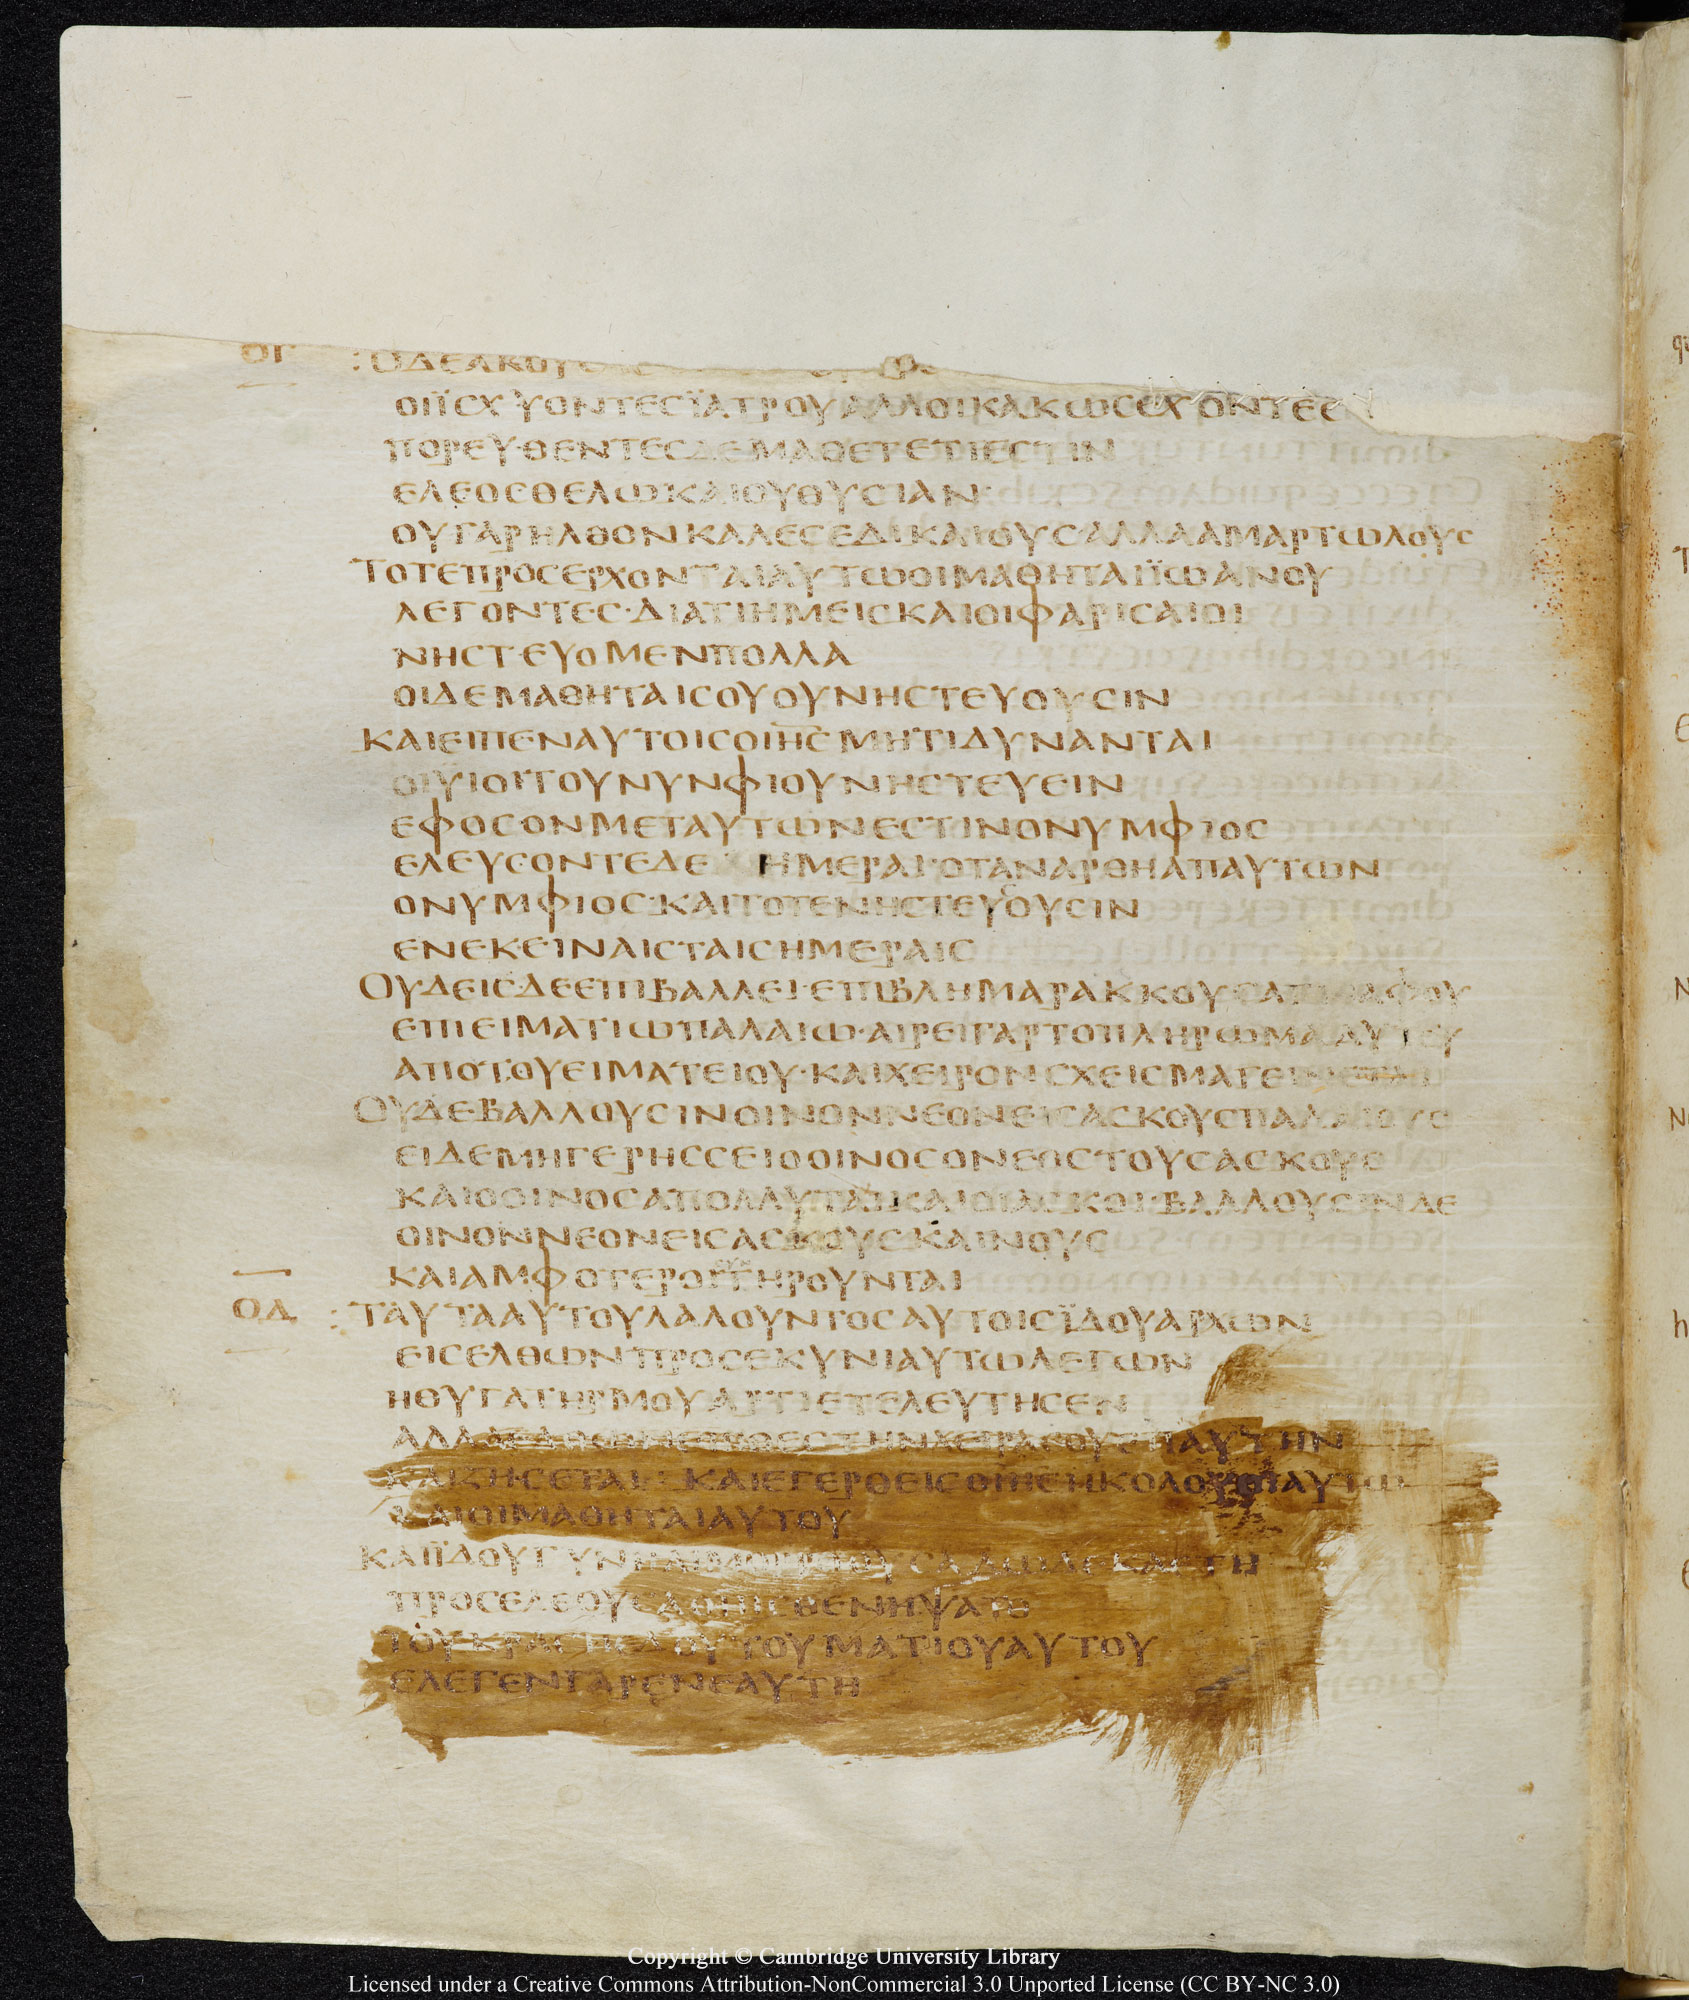 ΟΓ
ΟΔΕΑΚΟΥ
ΟΙΪΣΧΥΟΝΤΕΣΪΑΤΡΟΥΑΛΛΟΙΚΑΚΩΣΕΧΟΝΤΕΣ
ΠΟΡΕΥΘΕΝΤΕΣΔΕΜΑΘΕΤΕΤΙΕΣΤΙΝ
ΕΛΕΟΣΘΕΛΩΚΑΙΟΥΘΥΣΙΑΝ
ΟΥΓΑΡΗΛΘΟΝΚΑΛΕΣΕΔΙΚΑΙΟΥΣΑΛΛΑΑΜΑΡΤΩΛΟΥΣ
ΤΟΤΕΠΡΟΣΕΡΧΟΝΤΑΙΑΥΤΩΟΙΜΑΘΗΤΑΙΪΩΑΝΟΥ
ΛΕΓΟΝΤΕΣ·ΔΙΑΤΙΗΜΕΙΣΚΑΙΟΙΦΑΡΙΣΑΙΟΙ
ΝΗΣΤΕΥΟΜΕΝΠΟΛΛΑ
ΟΙΔΕΜΑΘΗΤΑΙΣΟΥΟΥΝΗΣΤΕΥΟΥΣΙΝ
ΚΑΙΕΙΠΕΝΑΥΤΟΙΣΟΙΗΣΜΗΤΙΔΥΝΑΝΤΑΙ
ΟΙΫΙΟΙΤΟΥΝΥΝΦΙΟΥΝΗΣΤΕΥΕΙΝ
ΕΦΟΣΟΝΜΕΤΑΥΤΩΝΕΣΤΙΝΟΝΥΜΦΙΟΣ
ΕΛΕΥΣΟΝΤΕΔΕ ΗΜΕΡΑΙ·ΟΤΑΝΑΡΘΗΑΠΑΥΤΩΝ
ΟΝΥΜΦΙΟΣ·ΚΑΙΤΟΤΕΝΗΣΤΕΥΣΟΥΣΙΝ
ΕΝΕΚΕΙΝΑΙΣΤΑΙΣΗΜΕΡΑΙΣ
ΟΥΔΕΙΣΔΕΕΠΙΒΑΛΛΕΙ·ΕΠΙΒΛΗΜΑΡΑΚΚΟΥΣΑΓΝΑΦΟΥ
ΕΠΙΕΙΜΑΤΙΩΠΑΛΑΙΩ·ΑΙΡΕΙΓΑΡΤΟΠΛΗΡΩΜΑΑΥΤΟΥ
ΑΠΟΤΟΥΕΙΜΑΤΕΙΟΥ·ΚΑΙΧΕΙΡΟΝΣΧΕΙΣΜΑΓΕΙΝΕΤΑΙ
ΟΥΔΕΒΑΛΛΟΥΣΙΝΟΙΝΟΝΝΕΟΝΕΙΣΑΣΚΟΥΣΠΑΛΑΙΟΥΣ
ΕΙΔΕΜΗΓΕΡΗΣΣΕΙΟΟΙΝΟΣΟΝΕΟΣΤΟΥΣΑΣΚΟΥΣ
ΚΑΙΟΟΙΝΟΣΑΠΟΛΛΥΤΑΙΚΑΙΟΙΑΣΚΟΙ·ΒΑΛΛΟΥΣΙΝΔΕ
ΟΙΝΟΝΝΕΟΝΕΙΣΑΣΚΟΥΣΚΑΙΝΟΥΣ
ΚΑΙΑΜΦΟΤΕΡΟΙΤΗΡΟΥΝΤΑΙ
ΟΔ
ΤΑΥΤΑΑΥΤΟΥΛΑΛΟΥΝΤΟΣΑΥΤΟΙΣΪΔΟΥΑΡΧΩΝ
ΕΙΣΕΛΘΩΝΠΡΟΣΕΚΥΝΙΑΥΤΩΛΕΓΩΝ
ΗΘΥΓΑΤΗΡΜΟΥΑΡΤΙΕΤΕΛΕΥΤΗΣΕΝ
ΑΛΛΑ ΤΗΝΧΕΙΡΑΣΟΥΕΠΑΥΤΗΝ
ΚΑΙΖΗΣΕΤΑΙ: ΚΑΙΕΓΕΡΘΕΙΣΟΙΗΣΗΚΟΛΟΥΘΙΑΥΤΩ
ΚΑΙΟΙΜΑΘΗΤΑΙΑΥΤΟΥ
ΚΑΙΪΔΟΥΓΥΝΗΑΙΜΟΡΟΟΥΣΑΔΩΔΕΚΑΕΤΗ
ΠΡΟΣΕΛΘΟΥΣΑΟΠΙΣΘΕΝΗΨΑΤΟ
ΤΟΥΚΡΑΣΠΕΔΟΥΤΟΥΜΑΤΙΟΥΑΥΤΟΥ
ΕΛΕΓΕΝΓΑΡΕΝΕΑΥΤΗ
Copyright © Cambridge University Library
Licensed under a Creative Commons Attribution-NonCommercial 3.0 Unported License (CC BY-NC 3.0)